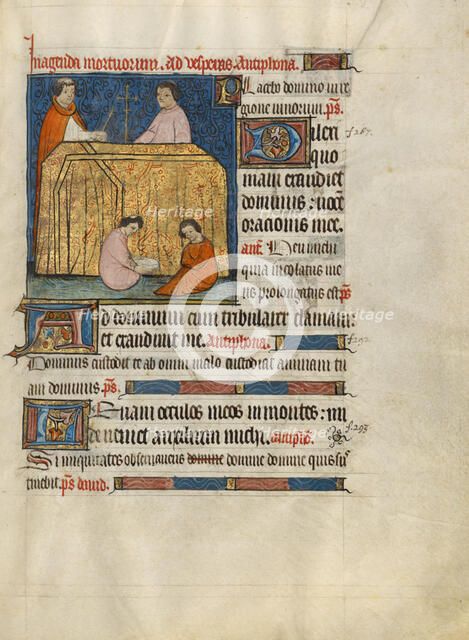 In agenda mortuorum. Ad vesperas. Antiphona.
Placebo domino in re
gione vivorum. ps.
Dilexi
quo
niam exaudiet
dominus: vocem
orationis mee.
an. Heu michi
quia incolatus me
us prolongatus est ps
Ad dominum cum tribularer clamavi:
et exaudivit me. Antiphona.
Dominus custodit te ab omni malo custodiat animam tu
am dominus. ps.
Levavi occulos meos in montes: un
de veniet auxilium michi. antipho.
Si iniquitates observaveris domine domine domine quis sus
tinebit. ps david.
f. 267.
f. 292.
f. 293
Heritage
Images